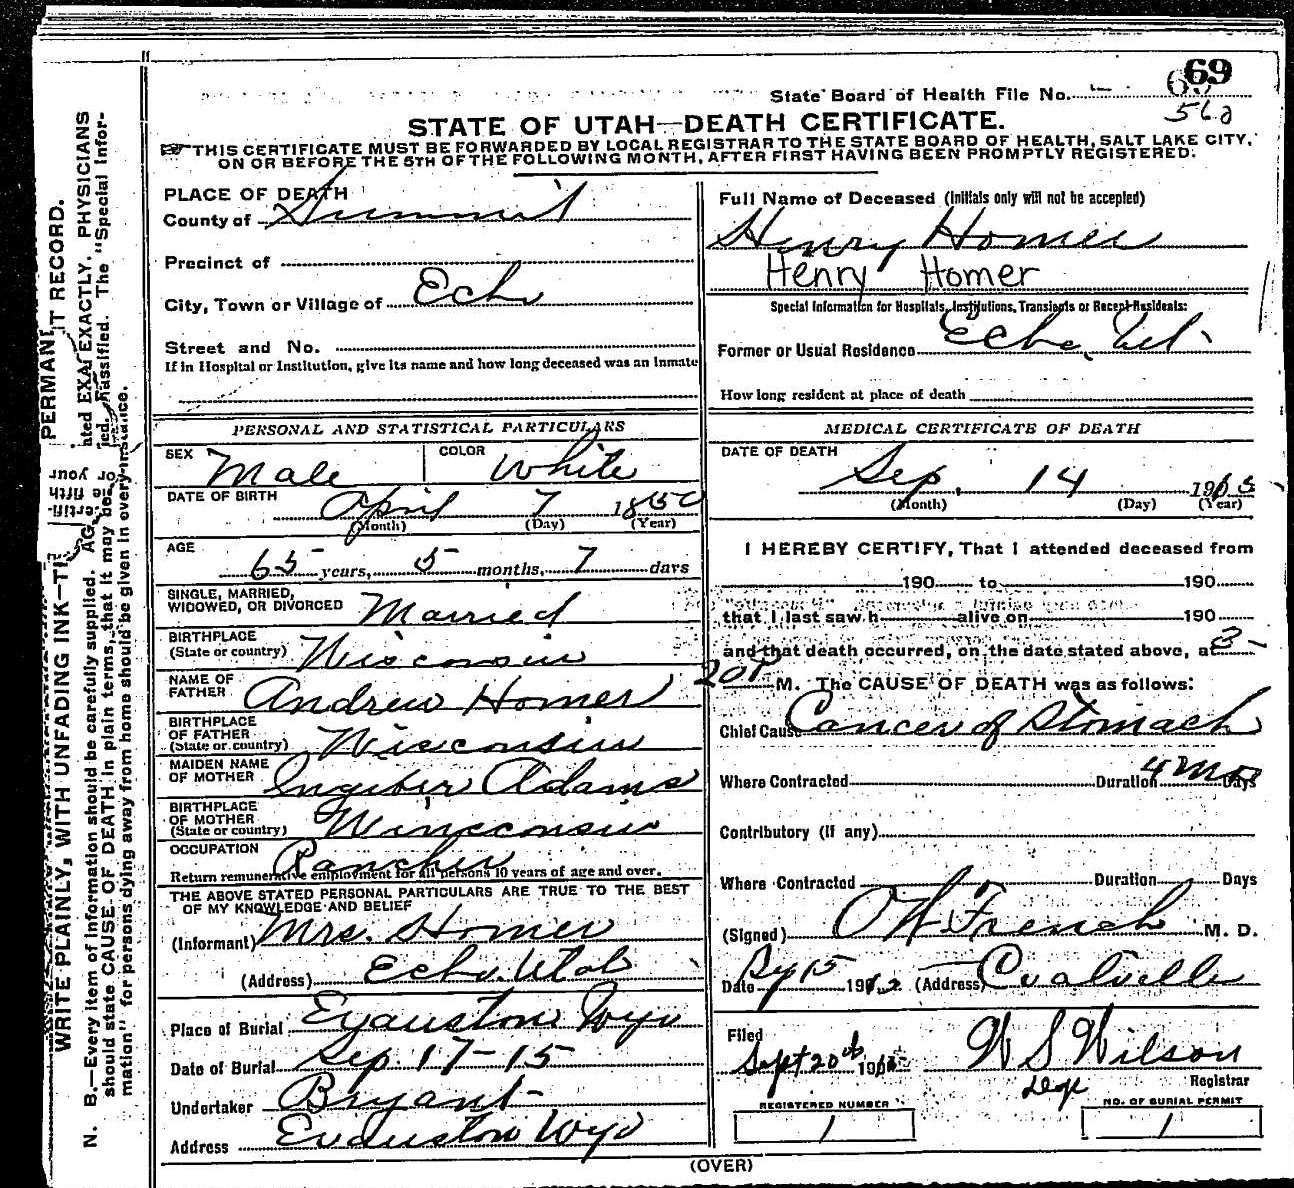 State Board of Health File No. 69
562
STATE OF UTAH—DEATH CERTIFICATE.
THIS CERTIFICATE MUST BE FORWARDED BY LOCAL REGISTRAR TO THE STATE BOARD OF HEALTH, SALT LAKE CITY,
ON OR BEFORE THE 5TH OF THE FOLLOWING MONTH, AFTER FIRST HAVING BEEN PROMPTLY REGISTERED.
PLACE OF DEATH
County of Summit
Precinct of
City, Town or Village of Echo
Street and No.
If in Hospital or Institution, give its name and how long deceased was an Inmate
Full Name of Deceased (Initials only will not be accepted)
Henry Homer
Henry Homer
Special Information for Hospitals, Institutions, Transients or Recent Residents:
Former or Usual Residence Echo, Ut.
How long resident at place of death
PERSONAL AND STATISTICAL PARTICULARS
SEX Male COLOR White
DATE OF BIRTH
April 7 1850
(Month) (Day) (Year)
AGE
65 years, 5 months, 7 days
SINGLE, MARRIED,
WIDOWED, OR DIVORCED Married
BIRTHPLACE
(State or country) Wisconsin
NAME OF
FATHER Andrew Homer
BIRTHPLACE
OF FATHER
(State or country) Wisconsin
MAIDEN NAME
OF MOTHER Ingeber Adams
BIRTHPLACE
OF MOTHER
(State or country) Winsconsin
OCCUPATION Rancher
Return remunerative employment for all persons 10 years of age and over.
THE ABOVE STATED PERSONAL PARTICULARS ARE TRUE TO THE BEST
OF MY KNOWLEDGE AND BELIEF
(Informant) Mrs. Homer
(Address) Echo Utah
Place of Burial Evanston Wyo
Date of Burial Sep. 17-15
Undertaker Bryant
Address Evanston Wyo
MEDICAL CERTIFICATE OF DEATH
DATE OF DEATH
Sep. 14 1915
(Month) (Day) (Year)
I HEREBY CERTIFY, That I attended deceased from
190 to 190
that I last saw h alive on 190
and that death occurred, on the date stated above, at 3-
20 P M. The CAUSE OF DEATH was as follows:
Chief Cause Cancer of Stomach
Where Contracted Duration 4 mo Days
Contributory (If any)
Where Contracted Duration Days
(Signed) O W French M. D.
Date 15 191 (Address) Coalville
Filed
Sept 20th 191 W S Wilson
Dep Registrar
REGISTERED NUMBER
1
NO. OF BURIAL PERMIT
1
(OVER)
WRITE PLAINLY, WITH UNFADING INK—
PERMAN
IT RECORD.
N. B.—Every item of information should be carefully supplied. AG
ated EXACTLY. PHYSICIANS
should state CAUSE OF DEATH in plain terms, that it may be
assified. The "Special Infor-
mation" for persons dying away from home should be given in every instance.